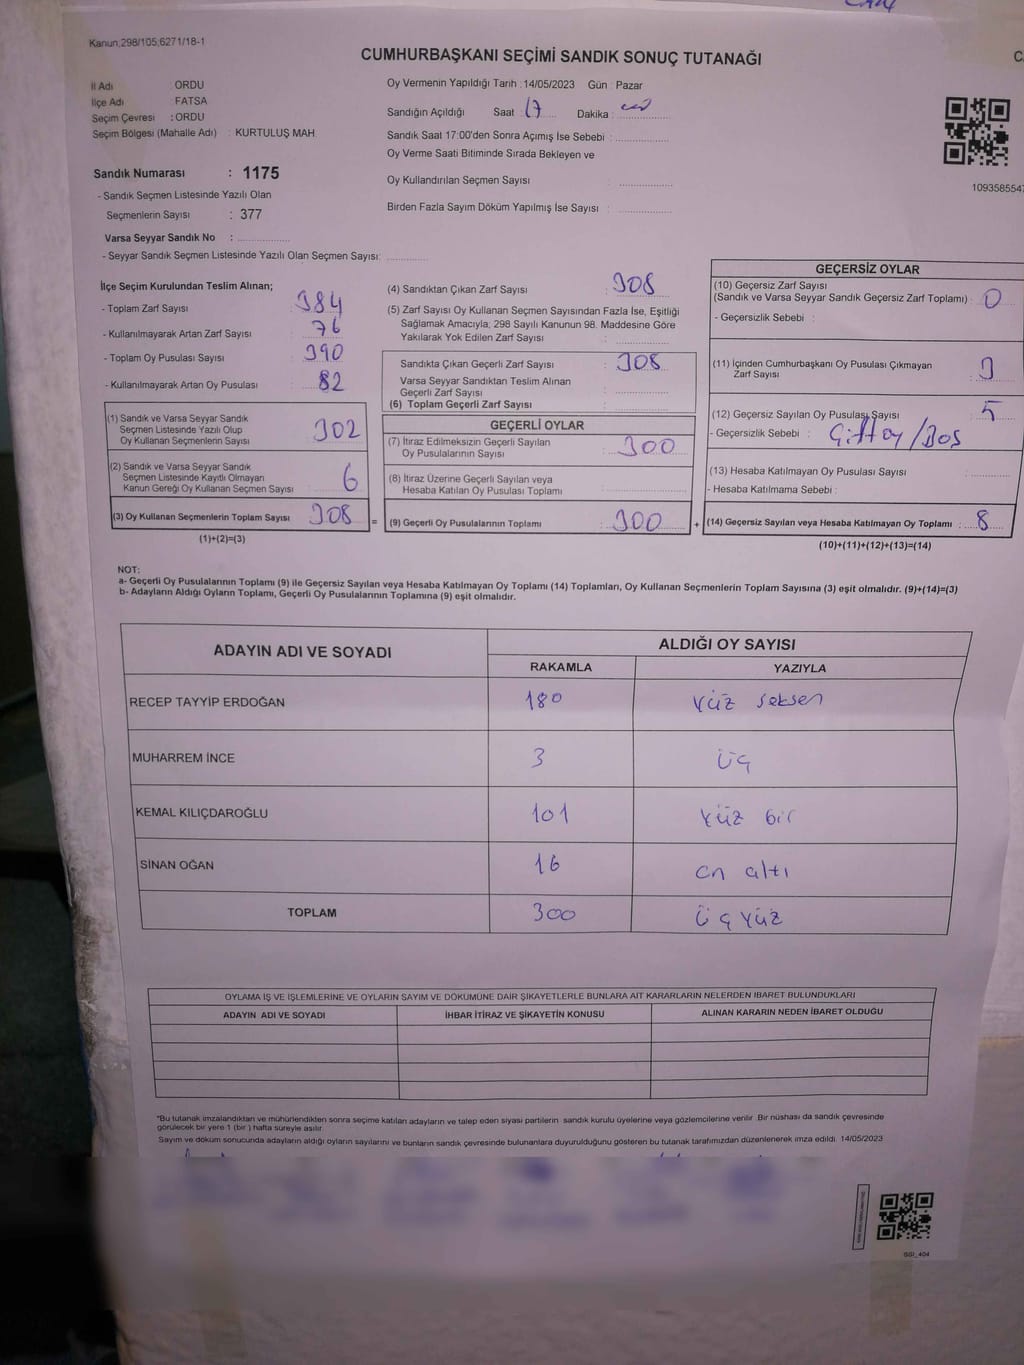 Kanun;298/105;6271/18-1
CUMHURBAŞKANI SEÇİMİ SANDIK SONUÇ TUTANAĞI
İl Adı ORDU
İlçe Adı : FATSA
Seçim Çevresi : ORDU
Seçim Bölgesi (Mahalle Adı) : KURTULUŞ MAH.
Sandık Numarası : 1175
- Sandık Seçmen Listesinde Yazılı Olan
Seçmenlerin Sayısı : 377
Varsa Seyyar Sandık No :
- Seyyar Sandık Seçmen Listesinde Yazılı Olan Seçmen Sayısı:
Oy Vermenin Yapıldığı Tarih : 14/05/2023 Gün : Pazar
Sandığın Açıldığı Saat : 17 Dakika :
Sandık Saat 17:00'den Sonra Açımış İse Sebebi :
Oy Verme Saati Bitiminde Sırada Bekleyen ve
Oy Kullandırılan Seçmen Sayısı :
Birden Fazla Sayım Döküm Yapılmış İse Sayısı :
1093585547
İlçe Seçim Kurulundan Teslim Alınan;
- Toplam Zarf Sayısı : 384
- Kullanılmayarak Artan Zarf Sayısı : 76
- Toplam Oy Pusulası Sayısı : 390
- Kullanılmayarak Artan Oy Pusulası : 82
(1) Sandık ve Varsa Seyyar Sandık
Seçmen Listesinde Yazılı Olup
Oy Kullanan Seçmenlerin Sayısı : 302
(2) Sandık ve Varsa Seyyar Sandık
Seçmen Listesinde Kayıtlı Olmayan
Kanun Gereği Oy Kullanan Seçmen Sayısı : 6
(3) Oy Kullanan Seçmenlerin Toplam Sayısı : 308 =
(1)+(2)=(3)
(4) Sandıktan Çıkan Zarf Sayısı : 308
(5) Zarf Sayısı Oy Kullanan Seçmen Sayısından Fazla İse, Eşitliği
Sağlamak Amacıyla; 298 Sayılı Kanunun 98. Maddesine Göre
Yakılarak Yok Edilen Zarf Sayısı :
Sandıkta Çıkan Geçerli Zarf Sayısı : 308
Varsa Seyyar Sandıktan Teslim Alınan
Geçerli Zarf Sayısı :
(6) Toplam Geçerli Zarf Sayısı :
GEÇERLİ OYLAR
(7) İtiraz Edilmeksizin Geçerli Sayılan
Oy Pusulalarının Sayısı : 300
(8) İtiraz Üzerine Geçerli Sayılan veya
Hesaba Katılan Oy Pusulası Toplamı :
(9) Geçerli Oy Pusulalarının Toplamı : 300 +
GEÇERSİZ OYLAR
(10) Geçersiz Zarf Sayısı
(Sandık ve Varsa Seyyar Sandık Geçersiz Zarf Toplamı) : 0
- Geçersizlik Sebebi :
(11) İçinden Cumhurbaşkanı Oy Pusulası Çıkmayan
Zarf Sayısı : 3
(12) Geçersiz Sayılan Oy Pusulası Sayısı : 5
- Geçersizlik Sebebi : Çift oy / Boş
(13) Hesaba Katılmayan Oy Pusulası Sayısı :
- Hesaba Katılmama Sebebi :
(14) Geçersiz Sayılan veya Hesaba Katılmayan Oy Toplamı : 8
(10)+(11)+(12)+(13)=(14)
NOT:
a- Geçerli Oy Pusulalarının Toplamı (9) ile Geçersiz Sayılan veya Hesaba Katılmayan Oy Toplamı (14) Toplamları, Oy Kullanan Seçmenlerin Toplam Sayısına (3) eşit olmalıdır. (9)+(14)=(3)
b- Adayların Aldığı Oyların Toplamı, Geçerli Oy Pusulalarının Toplamına (9) eşit olmalıdır.
ADAYIN ADI VE SOYADI ALDIĞI OY SAYISI
RAKAMLA YAZIYLA
RECEP TAYYİP ERDOĞAN 180 Yüz seksen
MUHARREM İNCE 3 üç
KEMAL KILIÇDAROĞLU 101 Yüz bir
SİNAN OĞAN 16 on altı
TOPLAM 300 üç yüz
OYLAMA İŞ VE İŞLEMLERİNE VE OYLARIN SAYIM VE DÖKÜMÜNE DAİR ŞİKAYETLERLE BUNLARA AİT KARARLARIN NELERDEN İBARET BULUNDUKLARI
ADAYIN ADI VE SOYADI İHBAR İTİRAZ VE ŞİKAYETİN KONUSU ALINAN KARARIN NEDEN İBARET OLDUĞU
*Bu tutanak imzalandıktan ve mühürlendikten sonra seçime katılan adayların ve talep eden siyasi partilerin sandık kurulu üyelerine veya gözlemcilerine verilir. Bir nüshası da sandık çevresinde
görülecek bir yere 1 (bir) hafta süreyle asılır.
Sayım ve döküm sonucunda adayların aldığı oyların sayılarını ve bunların sandık çevresinde bulunanlara duyurulduğunu gösteren bu tutanak tarafımızdan düzenlenerek imza edildi. 14/05/2023
SGI_404